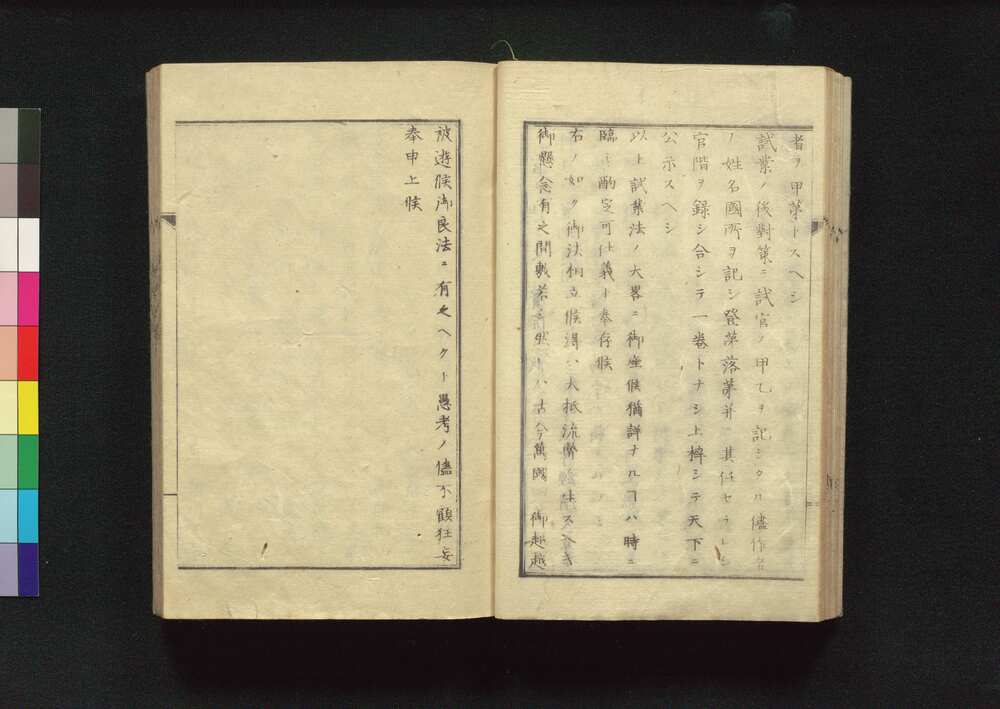 者ヲ甲第トスヘシ
試業ノ後對策ニ試官ノ甲乙ヲ記シタル儘作者
ノ姓名國所ヲ記シ登第落第并其任セラレシ
官階ヲ錄シ合シテ一卷トナシ上梓シテ天下ニ
公示スヘシ
以上試業法ノ大畧ニ御座候猶詳ナルヿハ時ニ
臨ミ酌定可仕義ト奉存候
右ノ如ク御法相立候得ハ大抵流弊ヲ生スヘキ
御懸念有之間敷若シ然ハ古今萬國御超越
被遊候御良法ニ有之ヘクト愚考ノ儘不顧狂妄
奉申上候